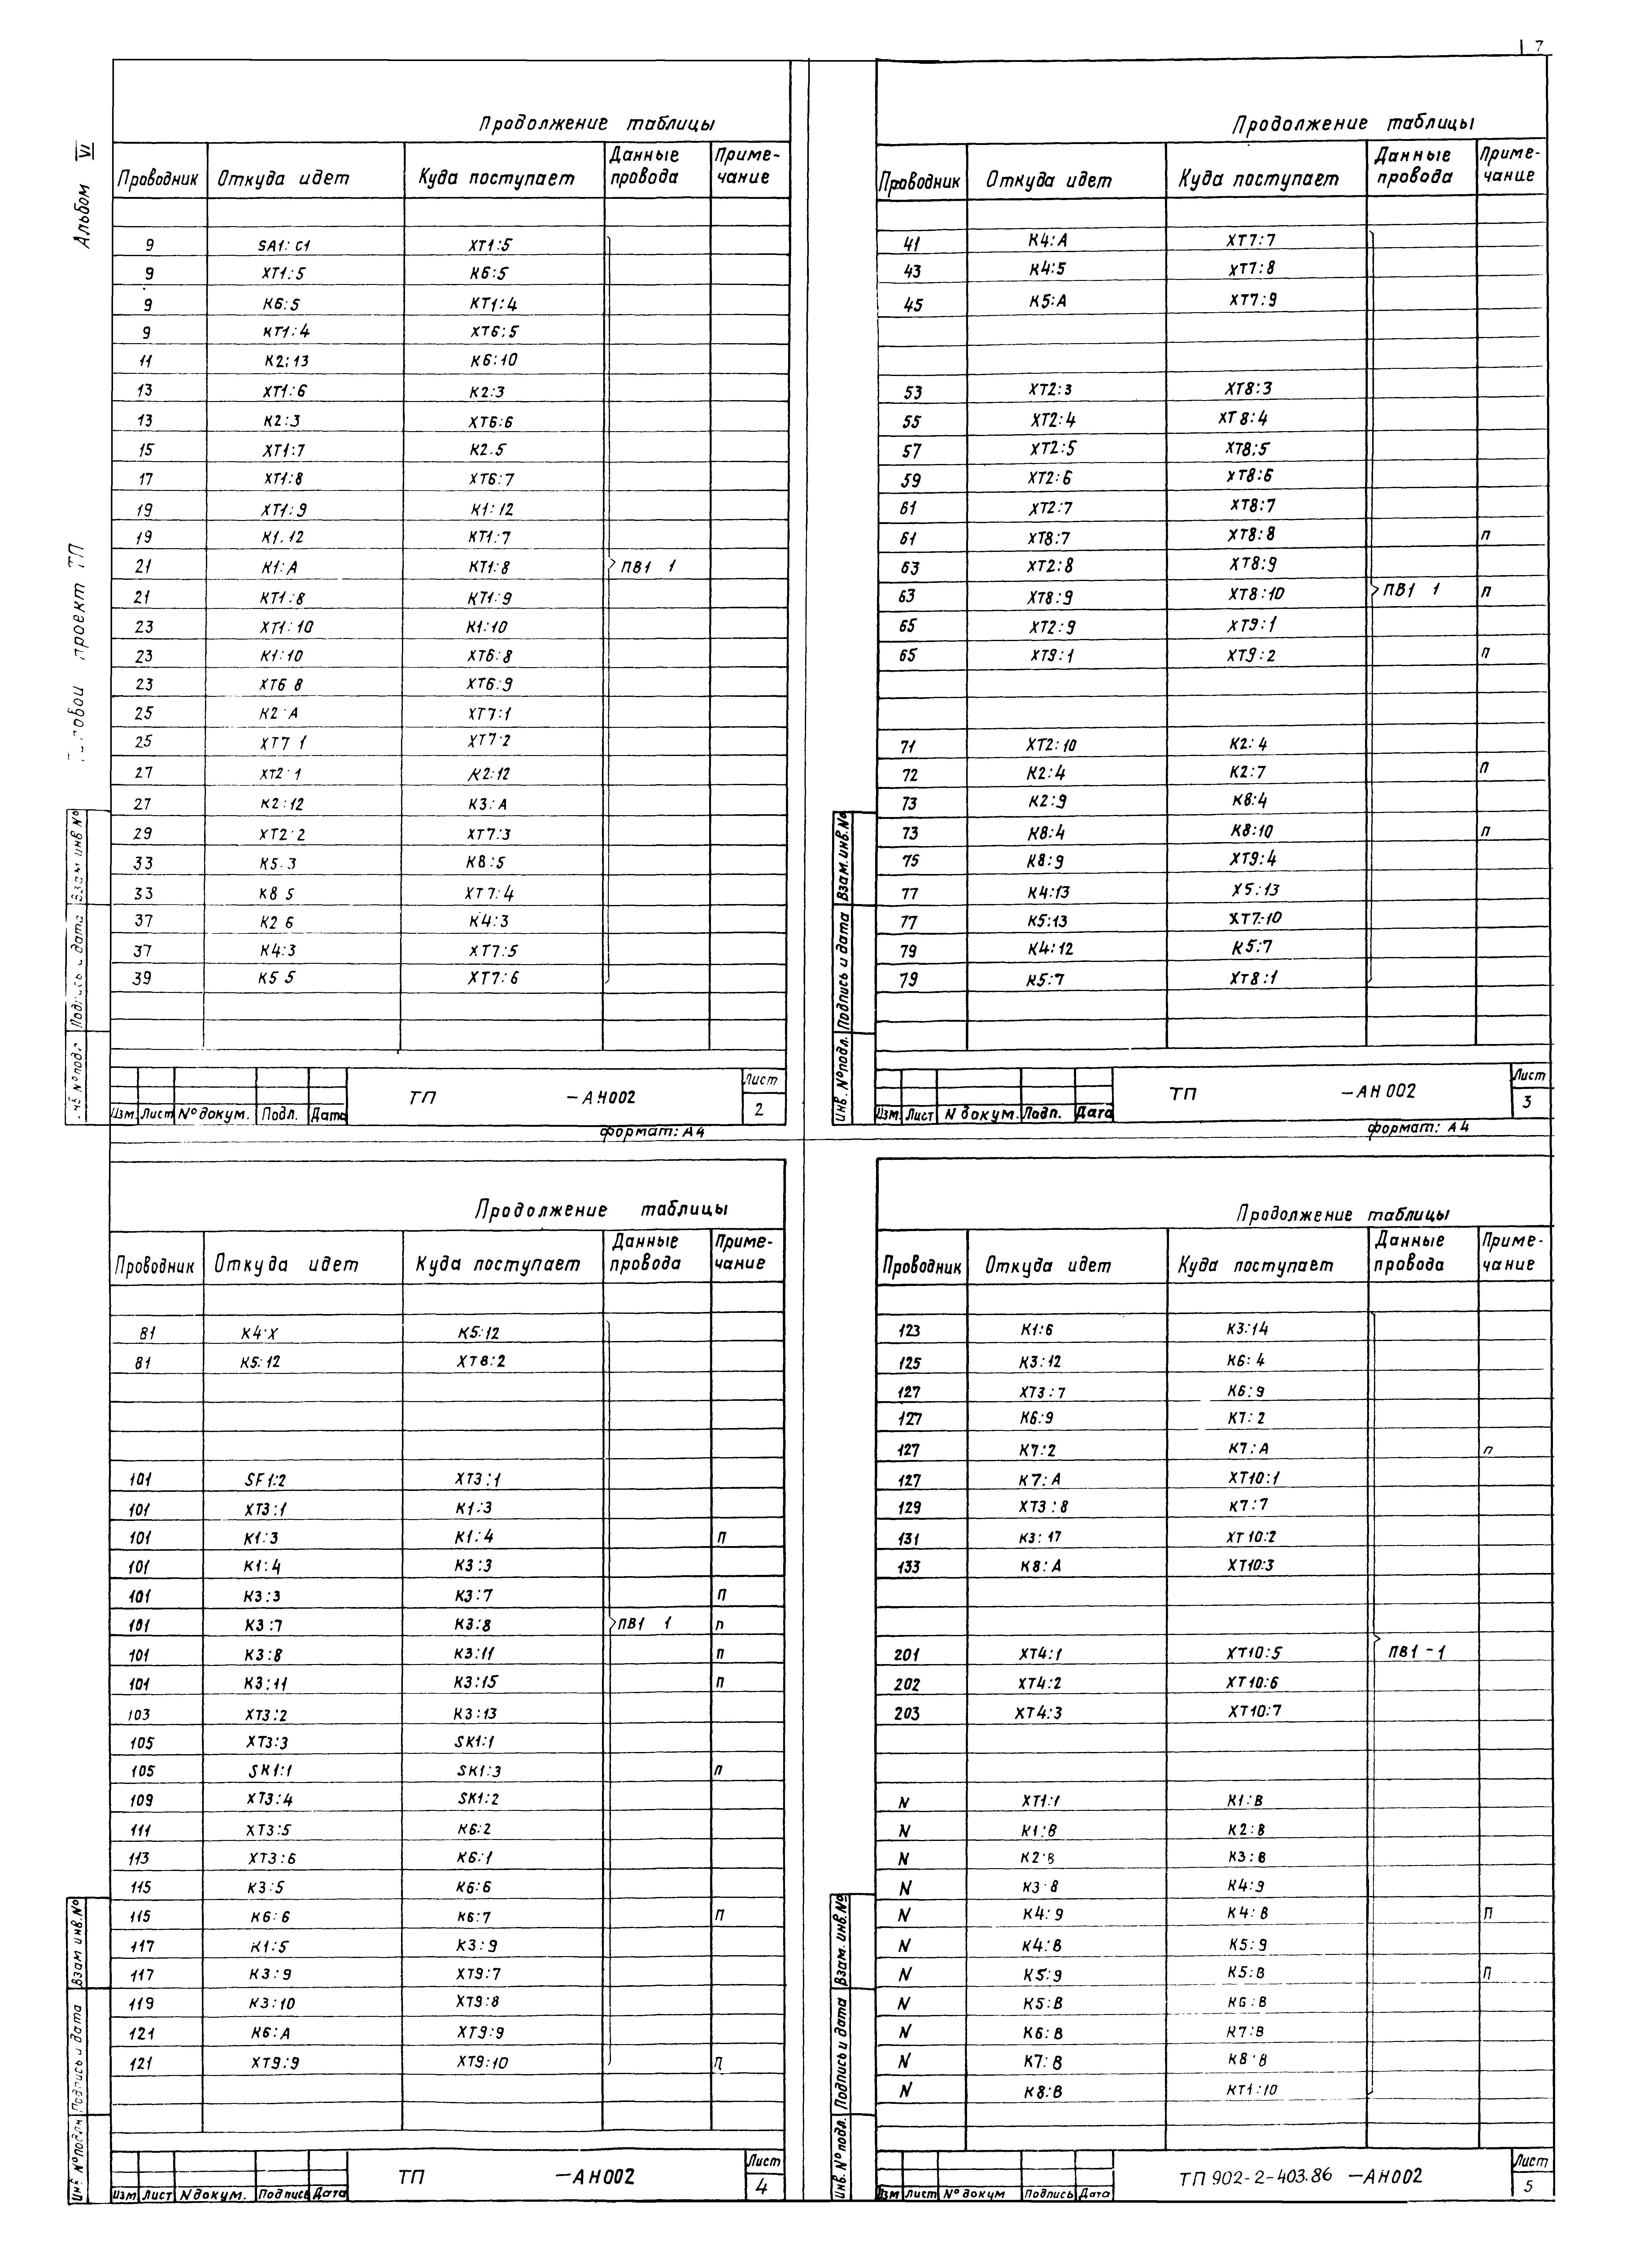 7
Альбом VI
проект ТП
Продолжение таблицы
Проводник Откуда идет Куда поступает Данные провода Приме-чание
9 SA1: C1 XT1:5
9 XT1:5 K6:5
9 K6:5 KT1:4
9 KT1:4 XT6:5
11 K2:13 K6:10
13 XT1:6 K2:3
13 K2:3 XT6:6
15 XT1:7 K2.5
17 XT1:8 XT6:7
19 XT1:9 K1:12
19 K1.12 KT1:7
21 K1:A KT1:8 ПВ1 1
21 KT1:8 KT1:9
23 XT1:10 K1:10
23 K1:10 XT6:8
23 XT6 8 XT6:9
25 K2 A XT7:1
25 XT7 1 XT7:2
27 XT2:1 K2:12
27 K2:12 K3:A
29 XT2:2 XT7:3
33 K5.3 K8:5
33 K8 5 XT7:4
37 K2 6 K4:3
37 K4:3 XT7:5
39 K5 5 XT7:6
Взам инв №
Подпись и дата
№ подл
Изм. Лист № докум. Подл. Дата
ТП -АН002
Лист
2
формат: А4
Продолжение таблицы
Проводник Откуда идет Куда поступает Данные провода Приме-чание
41 K4:A XT7:7
43 K4:5 XT7:8
45 K5:A XT7:9
53 XT2:3 XT8:3
55 XT2:4 XT8:4
57 XT2:5 XT8:5
59 XT2:6 XT8:6
61 XT2:7 XT8:7
61 XT8:7 XT8:8 п
63 XT2:8 XT8:9
63 XT8:9 XT8:10 ПВ1 1 п
65 XT2:9 XT9:1
65 XT9:1 XT9:2 п
71 XT2:10 K2:4
72 K2:4 K2:7 п
73 K2:9 K8:4
73 K8:4 K8:10 п
75 K8:9 XT9:4
77 K4:13 X5:13
77 K5:13 XT7:10
79 K4:12 K5:7
79 K5:7 XT8:1
Взам. инв. №
Подпись и дата
Инв. № подл.
Изм. Лист N докум. Подп. Дата
ТП -АН002
Лист
3
формат: А4
Продолжение таблицы
Проводник Откуда идет Куда поступает Данные провода Приме-чание
81 K4:X K5:12
81 K5:12 XT8:2
101 SF1:2 XT3:1
101 XT3:1 K1:3
101 K1:3 K1:4 п
101 K1:4 K3:3
101 K3:3 K3:7 п
101 K3:7 K3:8 ПВ1 1 п
101 K3:8 K3:11 п
101 K3:11 K3:15 п
103 XT3:2 K3:13
105 XT3:3 SK1:1
105 SK1:1 SK1:3 п
109 XT3:4 SK1:2
111 XT3:5 K6:2
113 XT3:6 K6:1
115 K3:5 K6:6
115 K6:6 K6:7 п
117 K1:5 K3:9
117 K3:9 XT9:7
119 K3:10 XT9:8
121 K6:A XT9:9
121 XT9:9 XT9:10 п
Взам инв. №
Подпись и дата
Инв. № подл
Изм Лист N докум. Подпись Дата
ТП -АН002
Лист
4
Продолжение таблицы
Проводник Откуда идет Куда поступает Данные провода Приме-чание
123 K1:6 K3:14
125 K3:12 K6:4
127 XT3:7 K6:9
127 K6:9 K7:2
127 K7:2 K7:A п
127 K7:A XT10:1
129 XT3:8 K7:7
131 K3:17 XT10:2
133 K8:A XT10:3
201 XT4:1 XT10:5 ПВ1-1
202 XT4:2 XT10:6
203 XT4:3 XT10:7
N XT1:1 K1:B
N K1:B K2:B
N K2:B K3:B
N K3:8 K4:9
N K4:9 K4:B п
N K4:B K5:9
N K5:9 K5:B п
N K5:B K6:B
N K6:B K7:B
N K7:B K8:B
N K8:B KT1:10
Взам. инв. №
Подпись и дата
Инв. № подл.
Изм Лист № докум Подпись Дата
ТП 902-2-403.86 -АН002
Лист
5